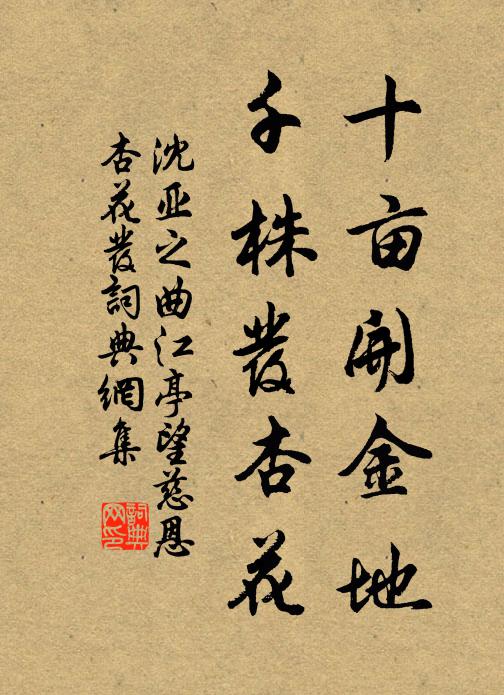 十亩开金地
千株發杏花
沈亚之曲江亭望慈恩
杏花發詞典網集
詞典网印